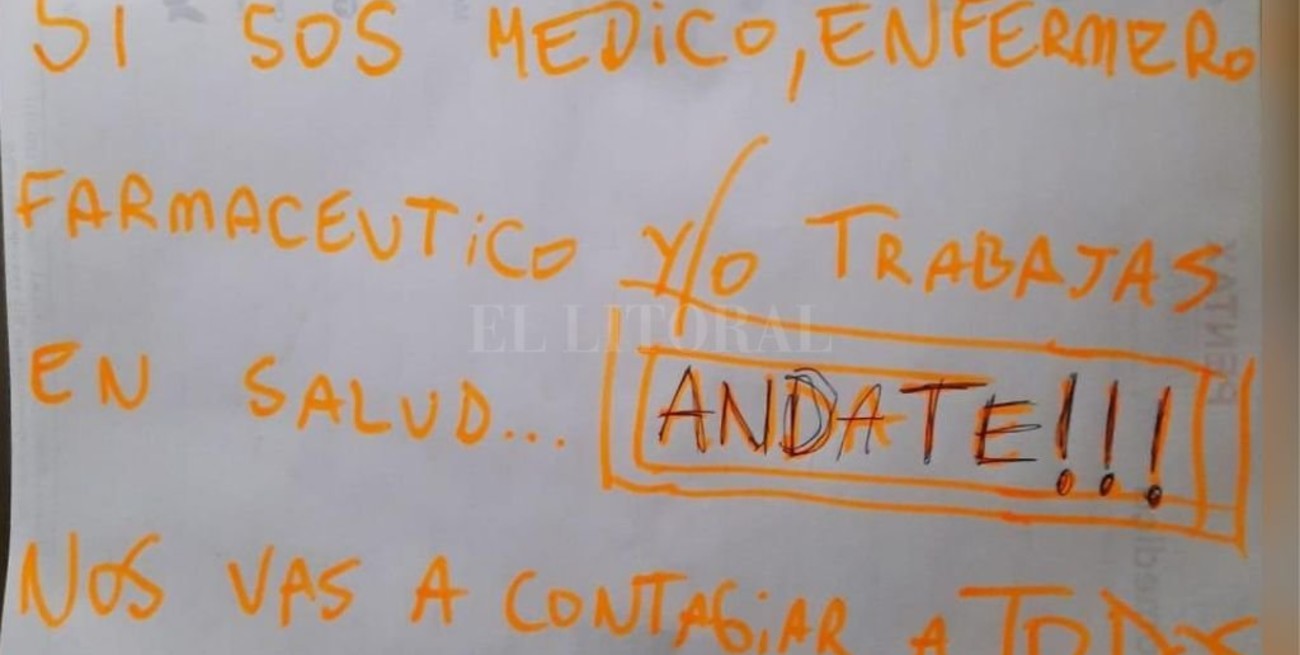 SI SOS MEDICO, ENFERMERO
FARMACEUTICO Y/O TRABAJAS
EN SALUD... ANDATE!!!
NOS VAS A CONTAGIAR A TODOS
EL LITORAL
PENTAX